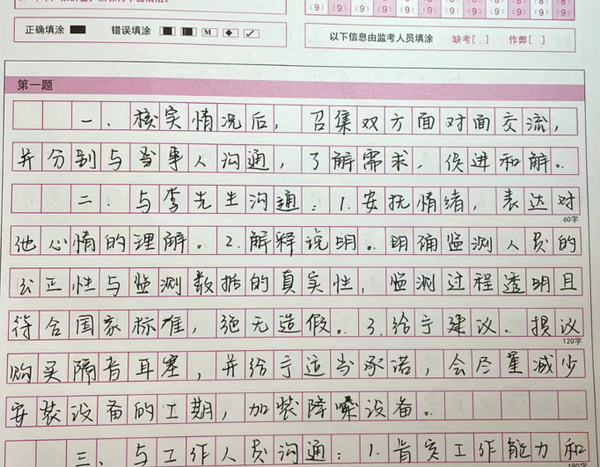 正确填涂 错误填涂 M
以下信息由监考人员填涂 缺考[ ] 作弊[ ]
[9] [9] [9] [9] [9] [9] [9] [9] [9]
第一题
一．核实情况后，召集双方面对面交流，
并分别与当事人沟通，了解需求，促进和解。
二．与李先生沟通：1.安抚情绪，表达对
60字
他心情的理解。2.解释说明。明确监测人员的
公正性与监测数据的真实性，监测过程透明且
符合国家标准，绝无造假。3.给予建议．提议
120字
购买隔音耳塞，并给予适当承诺，会尽量减少
安装设备的工期，加装降噪设备。
三．与工作人员沟通：1.肯定工作能力和
180字